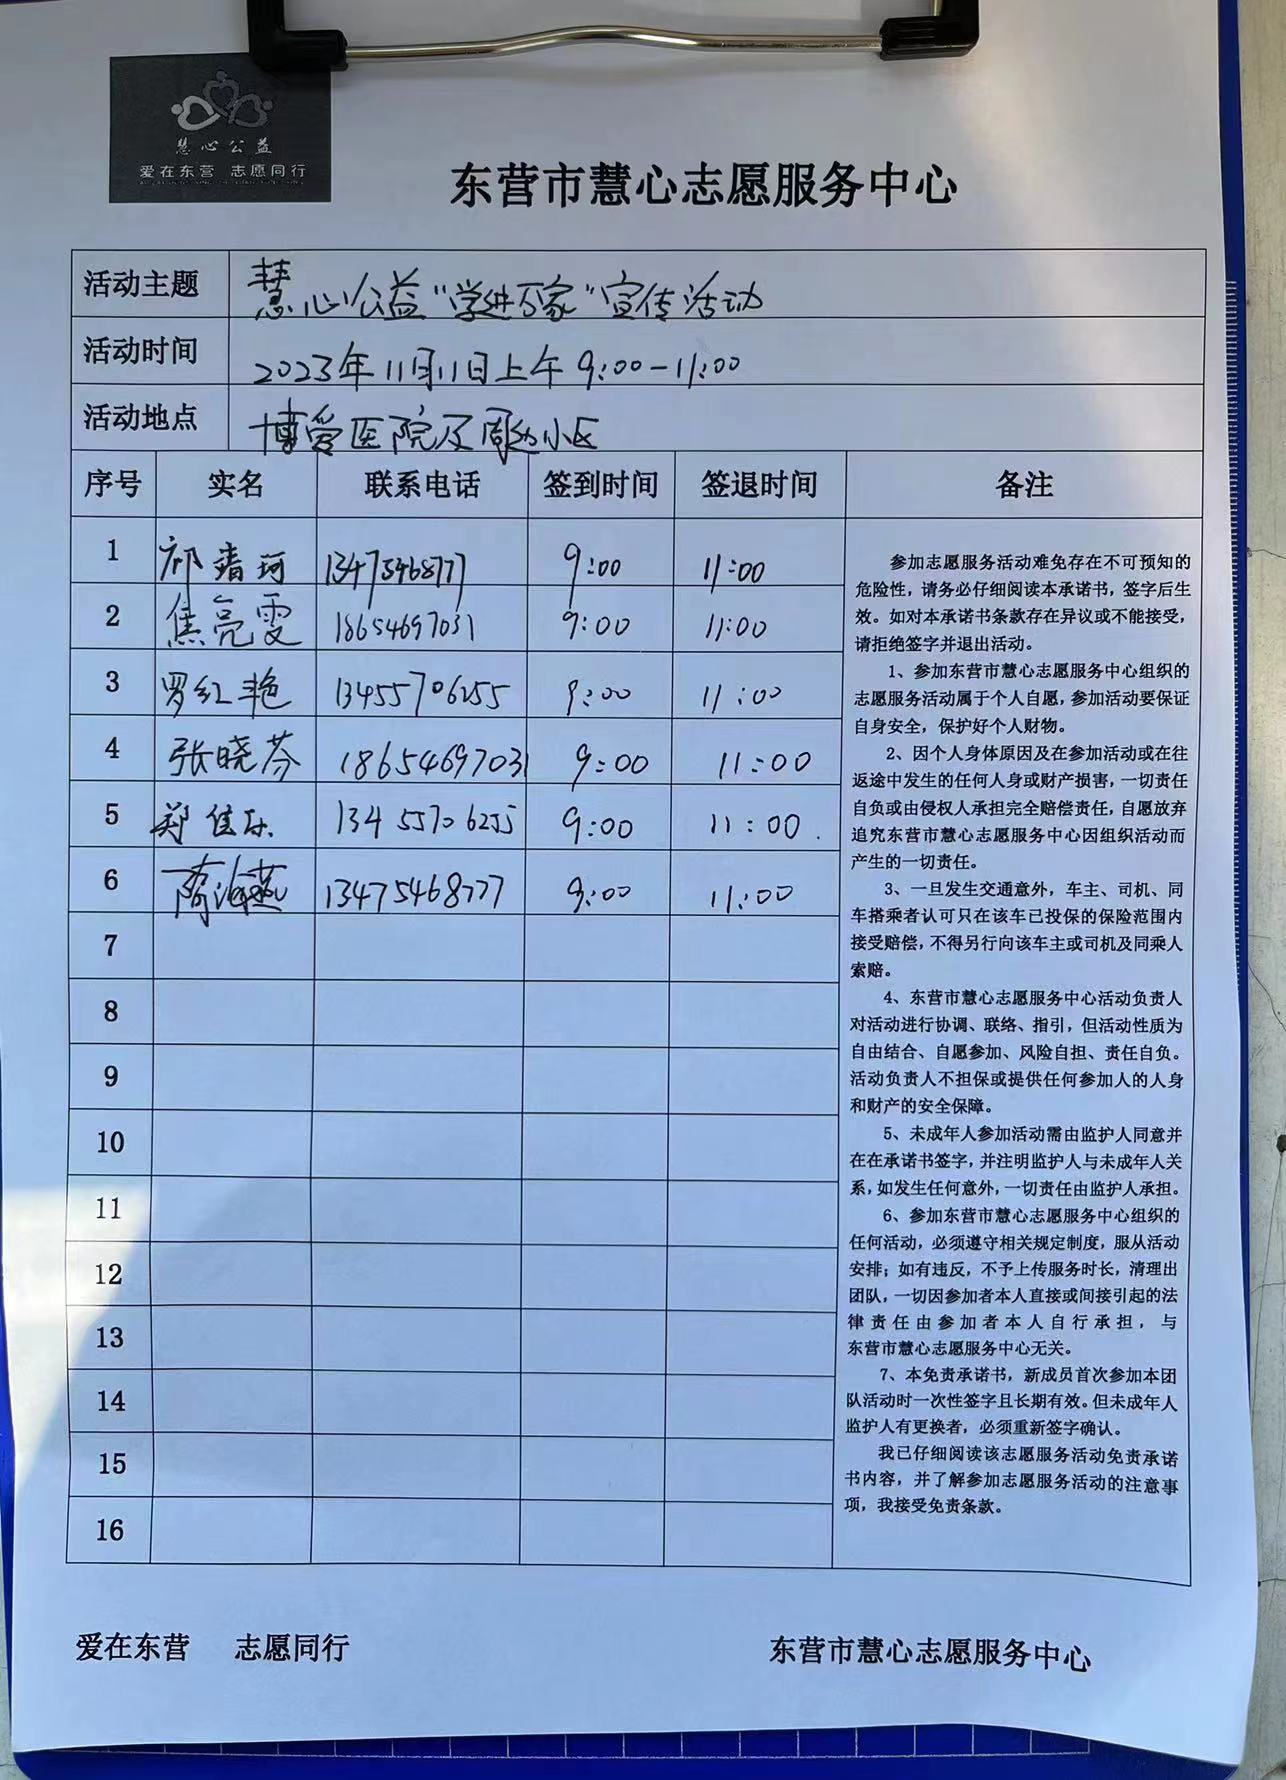 慧心公益
爱在东营 志愿同行
东营市慧心志愿服务中心
活动主题 慧心公益“学进万家”宣传活动
活动时间 2023年11月11日上午9:00-11:00
活动地点 博爱医院及周边小区
序号 实名 联系电话 签到时间 签退时间 备注
1 祁靖珂 13475468777 9:00 11:00
2 焦亮雯 18654697031 9:00 11:00
3 罗红艳 13455706255 9:00 11:00
4 张晓芬 18654697031 9:00 11:00
5 郑佳乐 13455706255 9:00 11:00
6 隋海燕 13475468777 9:00 11:00
7
8
9
10
11
12
13
14
15
16
参加志愿服务活动难免存在不可预知的
危险性，请务必仔细阅读本承诺书，签字后生
效。如对本承诺书条款存在异议或不能接受，
请拒绝签字并退出活动。
1、参加东营市慧心志愿服务中心组织的
志愿服务活动属于个人自愿，参加活动要保证
自身安全，保护好个人财物。
2、因个人身体原因及在参加活动或在往
返途中发生的任何人身或财产损害，一切责任
自负或由侵权人承担完全赔偿责任，自愿放弃
追究东营市慧心志愿服务中心因组织活动而
产生的一切责任。
3、一旦发生交通意外，车主、司机、同
车搭乘者认可只在该车已投保的保险范围内
接受赔偿，不得另行向该车主或司机及同乘人
索赔。
4、东营市慧心志愿服务中心活动负责人
对活动进行协调、联络、指引，但活动性质为
自由结合、自愿参加、风险自担、责任自负。
活动负责人不担保或提供任何参加人的人身
和财产的安全保障。
5、未成年人参加活动需由监护人同意并
在在承诺书签字，并注明监护人与未成年人关
系，如发生任何意外，一切责任由监护人承担。
6、参加东营市慧心志愿服务中心组织的
任何活动，必须遵守相关规定制度，服从活动
安排；如有违反，不予上传服务时长，清理出
团队，一切因参加者本人直接或间接引起的法
律责任由参加者本人自行承担，与
东营市慧心志愿服务中心无关。
7、本免责承诺书，新成员首次参加本团
队活动时一次性签字且长期有效。但未成年人
监护人有更换者，必须重新签字确认。
我已仔细阅读该志愿服务活动免责承诺
书内容，并了解参加志愿服务活动的注意事
项，我接受免责条款。
爱在东营 志愿同行 东营市慧心志愿服务中心